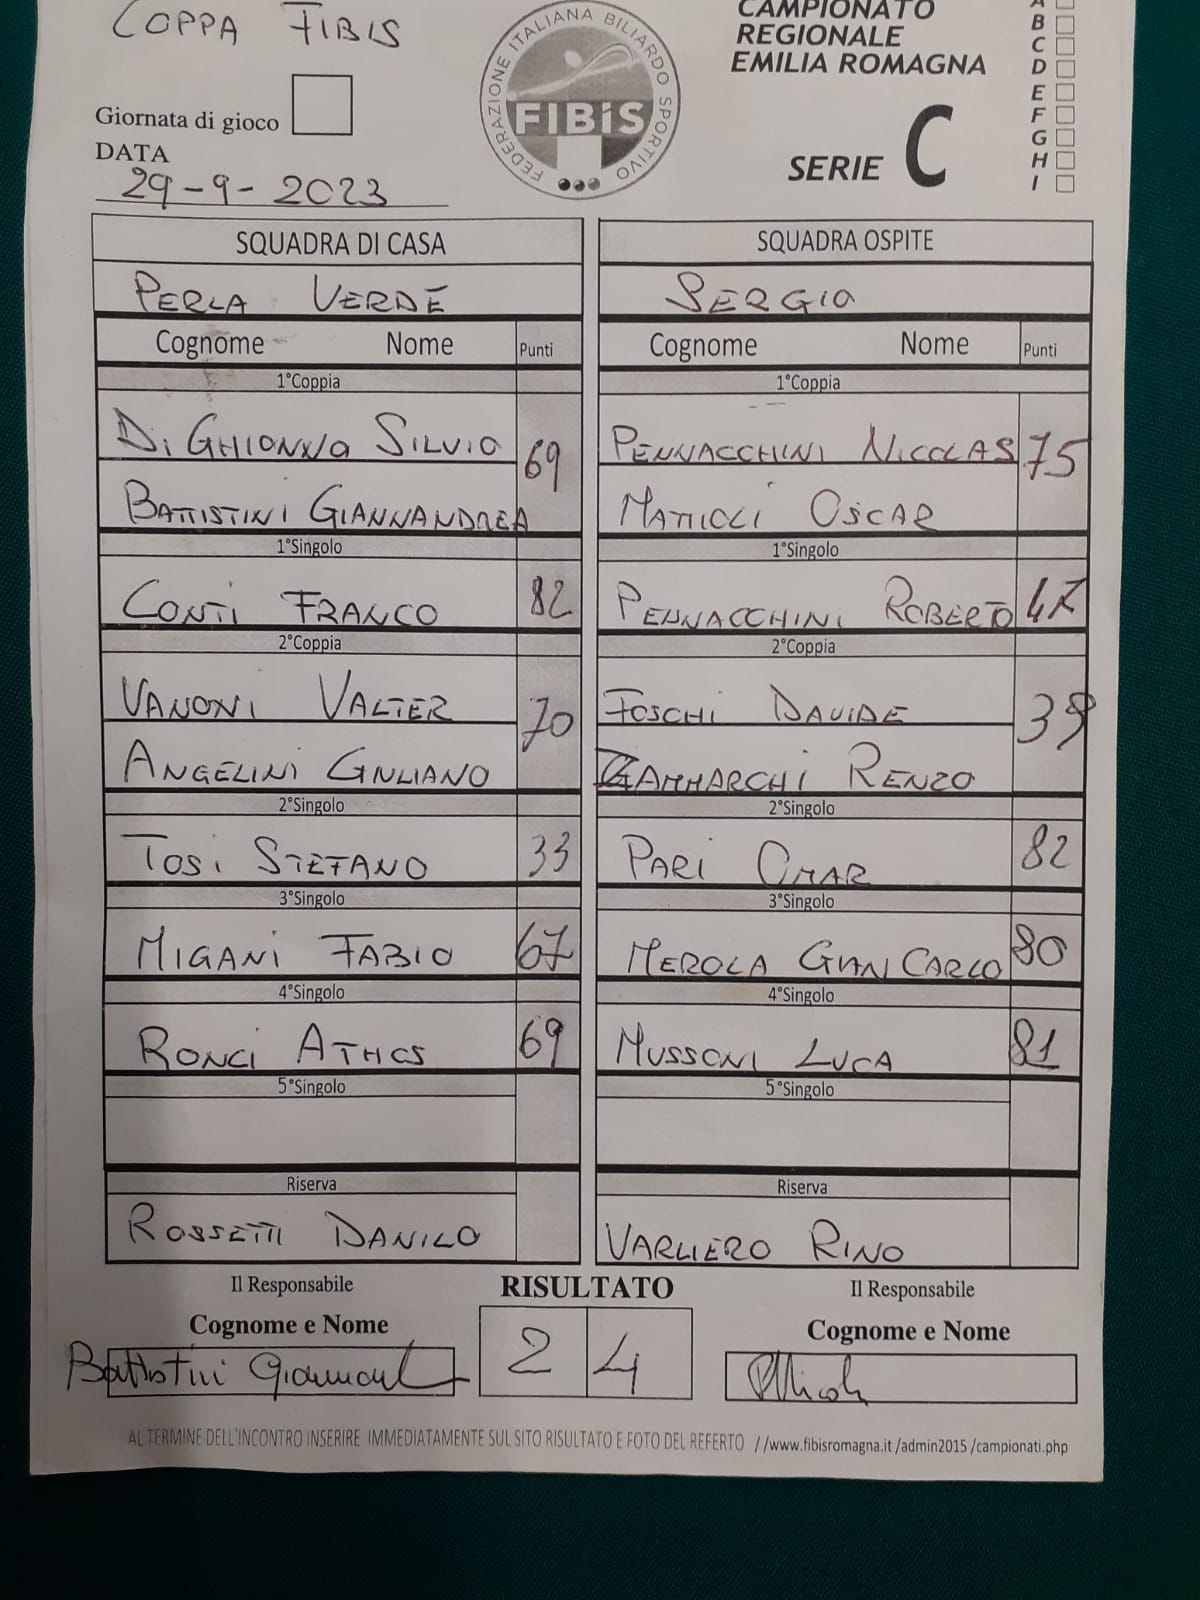 COPPA FIBIS
Giornata di gioco
DATA
29-9-2023
FEDERAZIONE ITALIANA BILIARDO SPORTIVO
FIBiS
CAMPIONATO
REGIONALE
EMILIA ROMAGNA
SERIE C
A
B
C
D
E
F
G
H
I
SQUADRA DI CASA SQUADRA OSPITE
PERLA VERDE SERGIO
Cognome Nome Punti Cognome Nome Punti
1°Coppia 1°Coppia
DI GHIONNO SILVIO 69 PENNACCHINI NICOLAS 75
BATTISTINI GIANNANDREA MATTIOLI OSCAR
1°Singolo 1°Singolo
CONTI FRANCO 82 PENNACCHINI ROBERTO 47
2°Coppia 2°Coppia
VANONI VALTER 70 FOSCHI DAVIDE
ANGELINI GIULIANO ZAMMARCHI RENZO
2°Singolo 2°Singolo
TOSI STEFANO 33 PARI OMAR 82
3°Singolo 3°Singolo
MIGANI FABIO 67 MEROLA GIAN CARLO 80
4°Singolo 4°Singolo
RONCI ATHOS 69 MUSSONI LUCA 81
5°Singolo 5°Singolo
Riserva Riserva
ROSSETTI DANILO VARLIERO RINO
Il Responsabile RISULTATO Il Responsabile
Cognome e Nome Cognome e Nome
Battistini 2 4
AL TERMINE DELL'INCONTRO INSERIRE IMMEDIATAMENTE SUL SITO RISULTATO E FOTO DEL REFERTO //www.fibisromagna.it /admin2015 /campionati.php